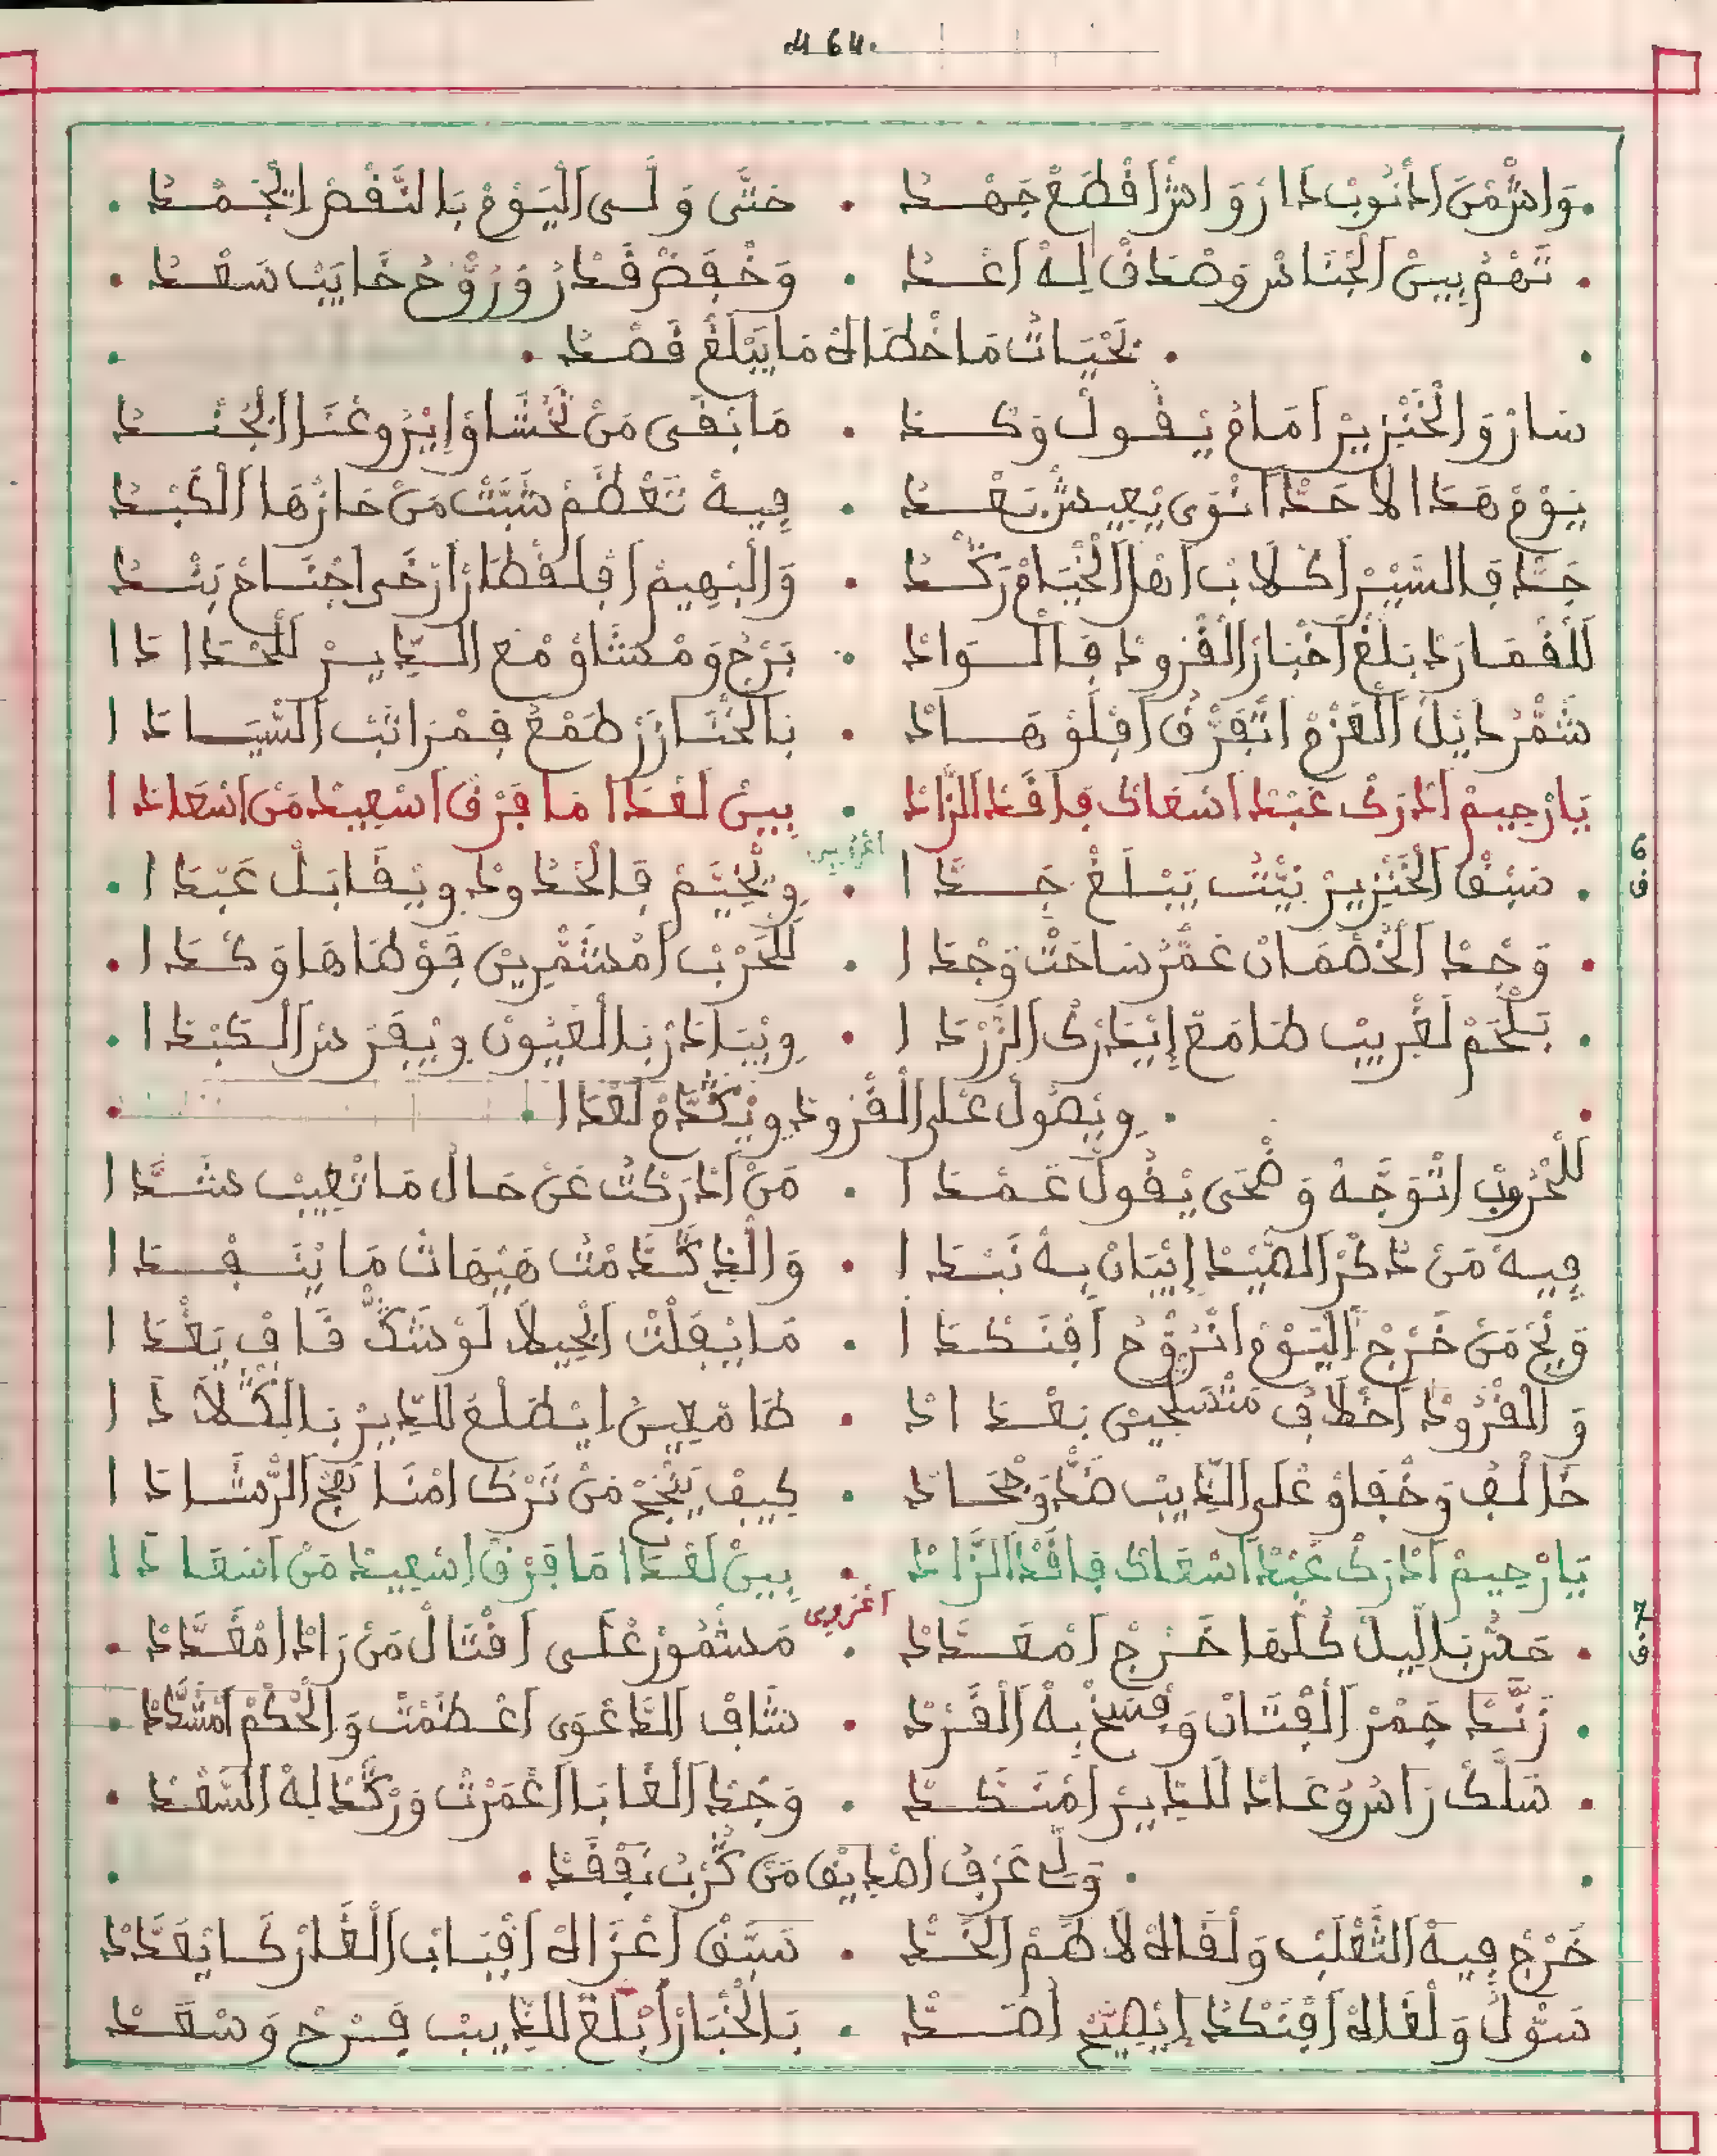 464
وَاشْمَنْ اذْنُوبْ دَا رْوَ اشْ اقْطَعْ جَهْدُ • حَتَّى وَلَّى الْيَوْمْ بَالنَّقْصْ الْخَمْدُ
تَهْمْ بِينْ الْجْنَاسْ وَصْدَقْ لِهْ اعْدُ • وَخْفِضْ قَدْرُ وَرْوَّحْ خَايَبْ سَعْدُ
تَحْيَاتْ مَا خْطَالْ مَا يَبْلَغْ قَصْدُ
سَارْ وَالْخَنْزِيرْ امَامُ يْقُولْ وَكْدَ • مَا بْقَى مَنْ تَخْشَاوْ إيْرُوعْنَا الْجُنْدُ
يَوْمْ هَذَا لا حَدّْ انْوَى يْعِيشْ بَعْدُ • فِيهْ تَعْظَمْ شَبَّتْ مَنْ حَازْهَا الْكَبْدُ
جَدّْ فَالسَّيْرْ اكْلَابْ اهْلْ الْخْيَامْ رَكْدُ • وَالْبَهِيمْ افْلَقْطَارْ ارْخَى اجْنَاحْ بَنْدُ
لَلْقْمَارَدْ بَلْغْ اخْبَارْ الْقْرُودْ فَالْوَادْ • بَرْجْوَ مْعَشَّاوْ مْعَ الدِّيبْ لَلْحْدَادَا
شَمَّرْ دَيْلْ الْعَزْمْ اتْفَرَّقْ اقْلُوْ هَادْ • بَالْخْنَازَرْ طَمْعْ فَمْرَاتَبْ السْيَادَا
يَارْحِيمْ ادْرَكْ عَبْدْ اسْعَاكْ فَاقْدْ الزَّادْ • بِينْ لَعْدَا مَا فْرَقْ اسْعِيدْ مَنْ اسْعَادَا
اعْرُوبِي
6
ق
سَبْقْ الْخَنْزِيرْ نِيّْتُ يَبْلَغْ جَدَّا • وِيْخَيَّمْ فَالْحْدُودْ وِيْقَابَلْ عَبْدَا
وَجْدْ الْخَصْمَانْ عَمَّرْ سَاحَتْ وَجْدَا • لَلْحَرْبْ امْشَمّْرِينْ فَوْطَاهَا وَكْدَا
بَلْحَمْ لَغْرِيبْ طَامَعْ إيْدَرْكْ الزَّرْدَا • وِيْبَادَرْ بَالْعْيُونْ وِيْفَرَّسْ الْكَبْدَا
وِيْصُولْ عْلَى الْقْرُودْ وِيْكَدَّمْ لَعْدَا
لَلْحْرُوبْ اتْوَجَّهْ وَضْحَى يْقُولْ عَمْدَا • مَنْ ادْرَكْتْ عَنْ حَالْ مَا تْغِيبْ شَدَّا
فِيهْ مَنْ دْكْرْ الصِّيدْ إيْبَانْ بِهْ نَبْدَا • وَالَّدْ كَدَّمْتْ هَيْهَاتْ مَا يْنَفْدَا
وَيْحْ مَنْ خْرَجْ الْيَوْمْ انْرَوَّحْ افْنَكْدَا • مَا يْفَلْتْ الْحِيلَا لَوْ شَكّْ قَافْ يَغْدَا
وَالْقْرُودْ اخْلَافْ مَتْسَلّْحِينْ بَعْدَادْ • طَامْعِينْ ايْطَلْعْ لَلدِّيبْ بَالْكْلَادَا
خَالْفْ وَخْفَاوْ عْلَى الدِّيبْ ضَدّْ وَجْحَادْ • كِيفْ يَنْجَحْ مَنْ تَرْكْ امْنَاهَجْ الرّْشَادَا
يَارْحِيمْ ادْرَكْ عَبْدْ اسْعَاكْ فَاقْدْ الزَّادْ • بِينْ لَعْدَا مَا فْرَقْ اسْعِيدْ مَنْ اسْعَادَا
اعْرُوبِي
7
ق
حَسّْ بَالِّيلْ كُلّْهَا خْرَجْ امْعَدَّدْ • مَشْمُورْ عْلَى اقْتَالْ مَنْ رَادْ امْعَدَّدْ
زَنَّدْ جَمْرْ الْفْتَانْ وَفْسَخْ بِهْ الْقَرْدْ • شَافْ الدَّعْوَى اعْظَمْتْ وَالْحُكْمْ امْشَدَّدْ
سَلَّكْ رَاسُ وُعَادْ لَلدِّيبْ امْنَكْدْ • وَجْدْ الْغَابَا اعْمَرْتْ وَرْكَدْ لِهْ السَّعْدْ
وَلَّى عَرْفْ اصْدِيقْ مَنْ كَرْبُ يَفْقَدْ
خْرَجْ فِيهْ الثَّعْلَبْ وَلْقَاهْ لَاطَمْ الْخَدّْ • سَبَّقْ اعْزَاهْ اقْبَابْ الْغَارْ كَا يْعَدَّدْ
سَوّْلُ وَلْقَاهْ افْنَكْدْ إيْصِيحْ اصَدّْ • بَالْخْبَارْ ابْلَغْ لَلدِّيبْ فْرَحْ وَسْعَدْ